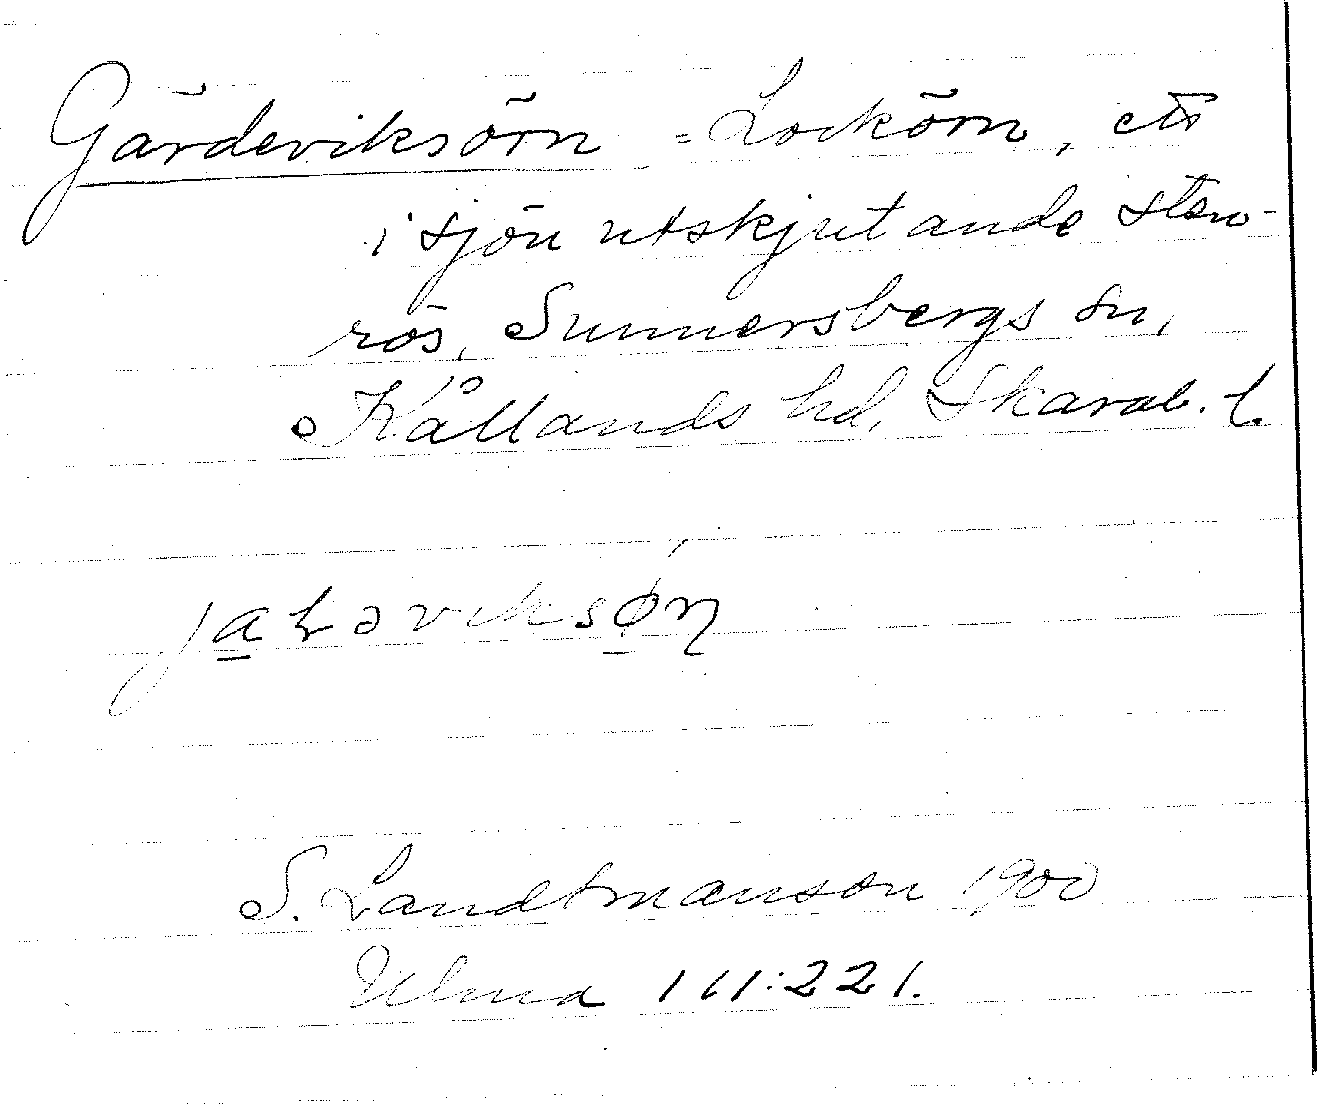 Gärdeviksörn = Lockörn, ett
i sjön utskjutande sten-
rös, Sunnersbergs sn,
Kållands hd, Skarab. l.
S. Landtmanson 1900
Ulma 111:221.